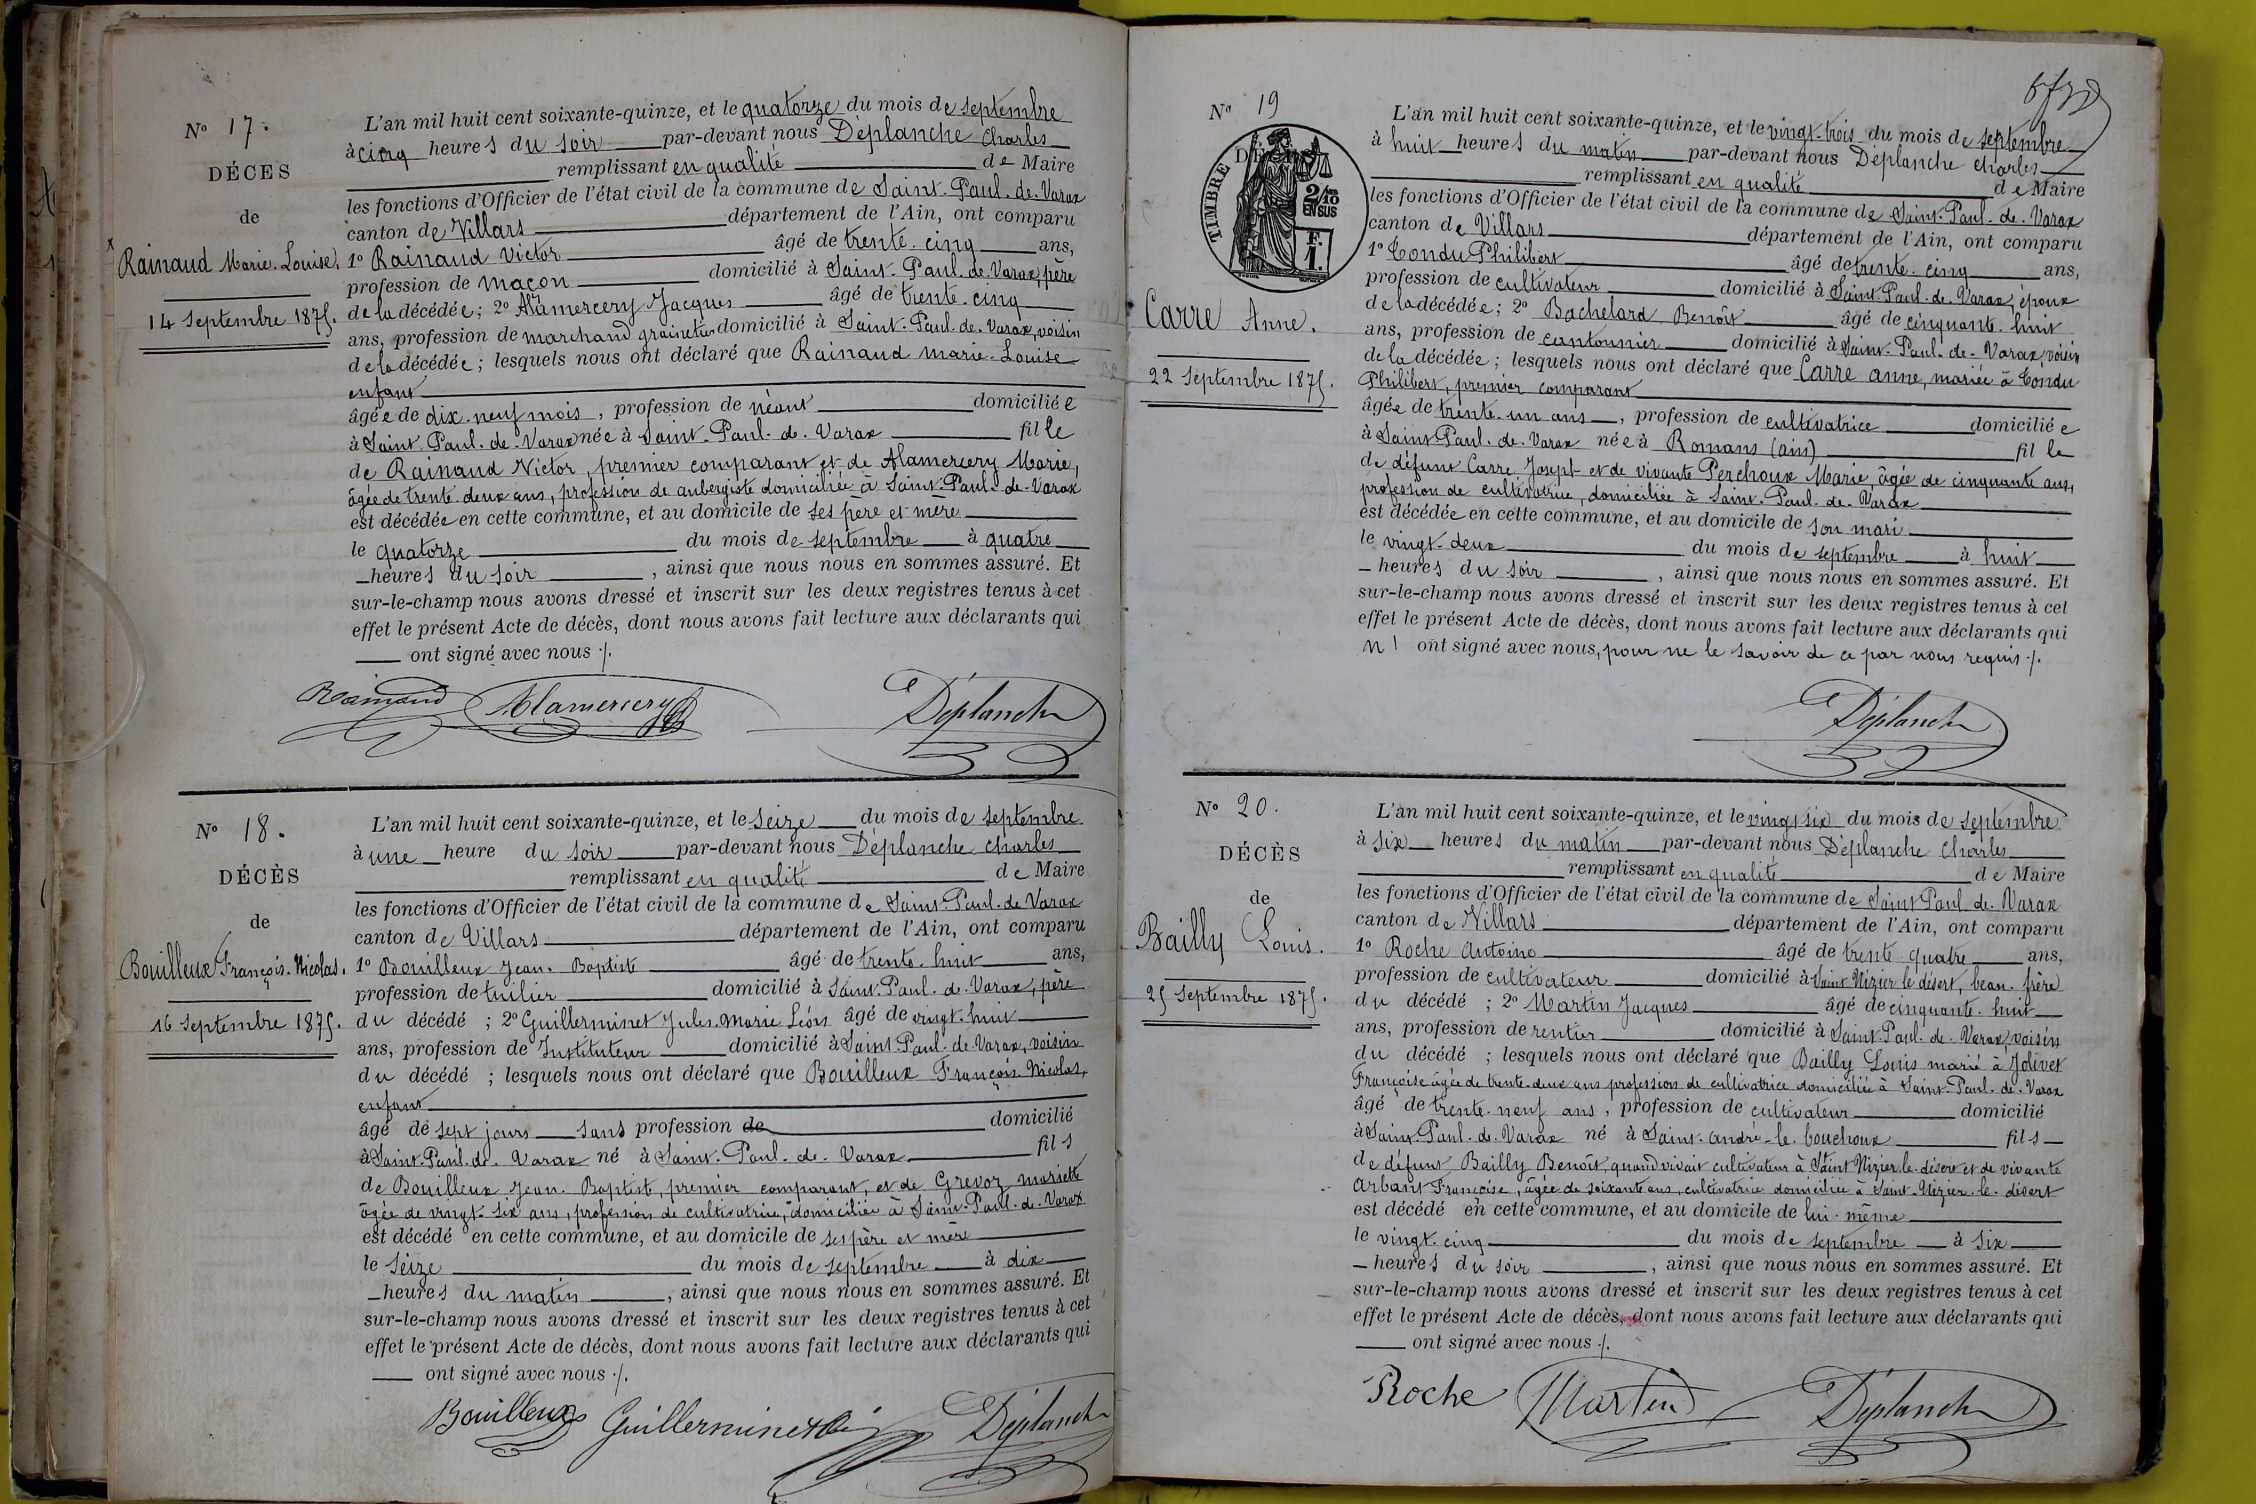 Nº 17.
DÉCES
de
Rainaud Marie-Louise,
14 Septembre 1875.
L'an mil huit cent soixante-quinze, et le quatorze du mois de septembre
à cinq heures du soir par-devant nous Déplanche Charles
remplissant en qualité de Maire
les fonctions d'Officier de l'état civil de la commune de Saint-Paul-de-Varax
canton de Villars département de l'Ain, ont comparu
1º Rainaud Victor âgé de trente-cinq ans,
profession de maçon domicilié à Saint-Paul-de-Varax, père
de la décédée; 2º Alamercery Jacques âgé de trente-cinq
ans, profession de marchand grainetier domicilié à Saint-Paul-de-Varax, voisin
de la décédée; lesquels nous ont déclaré que Rainaud Marie-Louise
enfant
âgée de dix-neuf mois, profession de néant domiciliée
à Saint-Paul-de-Varax née à Saint-Paul-de-Varax fille
de Rainaud Victor, premier comparant et de Alamercery Marie,
âgée de trente-deux ans, profession de aubergiste domiciliée à Saint-Paul-de-Varax
est décédée en cette commune, et au domicile de ses père et mère
le quatorze du mois de septembre à quatre
heures du soir, ainsi que nous nous en sommes assuré. Et
sur-le-champ nous avons dressé et inscrit sur les deux registres tenus à cet
effet le présent Acte de décès, dont nous avons fait lecture aux déclarants qui
ont signé avec nous ./.
Rainaud Alamercery Déplanche
Nº 18.
DÉCÈS
de
Bouilleux François-Nicolas.
16 Septembre 1875.
L'an mil huit cent soixante-quinze, et le seize du mois de septembre
à une heure du soir par-devant nous Déplanche Charles
remplissant en qualité de Maire
les fonctions d'Officier de l'état civil de la commune de Saint-Paul-de-Varax
canton de Villars département de l'Ain, ont comparu
1º Bouilleux Jean-Baptiste âgé de trente-huit ans,
profession de tuilier domicilié à Saint-Paul-de-Varax, père
du décédé ; 2º Guillerminet Jules-Marie Léon âgé de vingt-huit
ans, profession de Instituteur domicilié à Saint-Paul-de-Varax, voisin
du décédé ; lesquels nous ont déclaré que Bouilleux François-Nicolas,
enfant
âgé de sept jours sans profession de domicilié
à Saint-Paul-de-Varax né à Saint-Paul-de-Varax fils
de Bouilleux Jean-Baptiste, premier comparant, et de Grevoz Mariette
âgée de vingt-six ans, profession de cultivatrice, domiciliée à Saint-Paul-de-Varax
est décédé en cette commune, et au domicile de ses père et mère
le seize du mois de septembre à dix
heures du matin, ainsi que nous nous en sommes assuré. Et
sur-le-champ nous avons dressé et inscrit sur les deux registres tenus à cet
effet le présent Acte de décès, dont nous avons fait lecture aux déclarants qui
ont signé avec nous ./.
Bouilleux Guillerminet Déplanche
Nº 19
TIMBRE
2/10
EN SUS
F.
1.
Carre Anne.
22 Septembre 1875.
L'an mil huit cent soixante-quinze, et le vingt-trois du mois de septembre
à huit heures du matin par-devant nous Déplanche Charles
remplissant en qualité de Maire
les fonctions d'Officier de l'état civil de la commune de Saint-Paul-de-Varax
canton de Villars département de l'Ain, ont comparu
1º Condu Philibert âgé de trente-cinq ans,
profession de cultivateur domicilié à Saint-Paul-de-Varax, époux
de la décédée; 2º Bachelard Benoît âgé de cinquante-huit
ans, profession de cantonnier domicilié à Saint-Paul-de-Varax, voisin
de la décédée; lesquels nous ont déclaré que Carre Anne, mariée à Condu
Philibert, premier comparant
âgée de trente-un ans, profession de cultivatrice domiciliée
à Saint-Paul-de-Varax née à Romans (Ain) fille
de défunt Carre Joseph et de vivante Perchoux Marie, âgée de cinquante ans,
profession de cultivatrice, domiciliée à Saint-Paul-de-Varax
est décédée en cette commune, et au domicile de son mari
le vingt-deux du mois de septembre à huit
heures du soir, ainsi que nous nous en sommes assuré. Et
sur-le-champ nous avons dressé et inscrit sur les deux registres tenus à cet
effet le présent Acte de décès, dont nous avons fait lecture aux déclarants qui
n' ont signé avec nous, pour ne le savoir de ce par nous requis ./.
Déplanche
Nº 20.
DÉCÈS
de
Bailly Louis.
25 Septembre 1875.
L'an mil huit cent soixante-quinze, et le vingt six du mois de septembre
à six heures du matin par-devant nous Déplanche Charles
remplissant en qualité de Maire
les fonctions d'Officier de l'état civil de la commune de Saint Paul-de-Varax
canton de Villars département de l'Ain, ont comparu
1º Roche Antoine âgé de trente quatre ans,
profession de cultivateur domicilié à Saint Nizier le désert, beau-frère
du décédé ; 2º Martin Jacques âgé de cinquante-huit
ans, profession de rentier domicilié à Saint-Paul-de-Varax, voisin
du décédé ; lesquels nous ont déclaré que Bailly Louis marié à Jolivet
Françoise âgée de trente-deux ans profession de cultivatrice domiciliée à Saint-Paul-de-Varax
âgé de trente-neuf ans, profession de cultivateur domicilié
à Saint-Paul-de-Varax né à Saint-André-le-bouchoux fils
de défunt Bailly Benoît, quand vivait cultivateur à Saint Nizier-le-désert et de vivante
Arbant Françoise, âgée de soixante ans, cultivatrice domiciliée à Saint-Nizier-le-désert
est décédé en cette commune, et au domicile de lui-même
le vingt-cinq du mois de septembre à six
heures du soir, ainsi que nous nous en sommes assuré. Et
sur-le-champ nous avons dressé et inscrit sur les deux registres tenus à cet
effet le présent Acte de décès, dont nous avons fait lecture aux déclarants qui
ont signé avec nous ./.
Roche Martin Déplanche